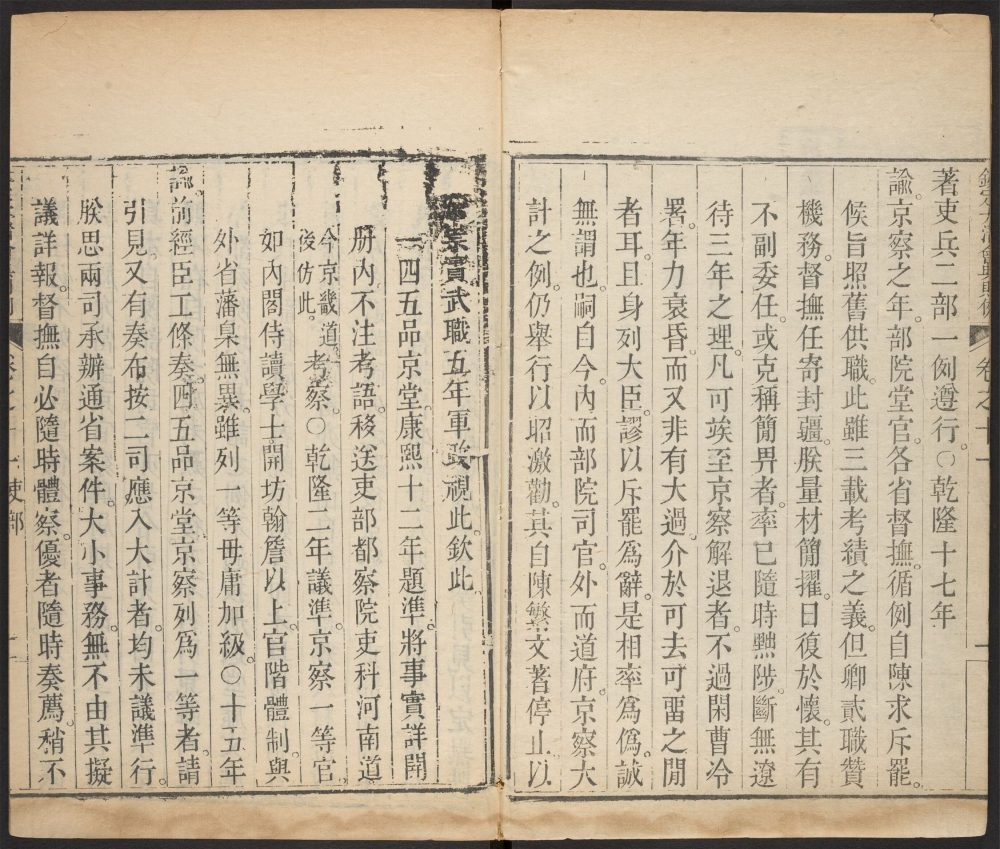 著吏兵二部一例遵行○乾隆十七年
諭京察之年部院堂官各省督撫循例自陳求斥罷
候旨照舊供職此雖三載考績之義但卿貳職贊
機務督撫任寄封疆朕量材簡擢日復於懷其有
不副委任或克稱簡畀者率已隨時黜陟斷無遼
待三年之理凡可竢至京察解退者不過閑曹冷
署年力衰昏而又非有大過介於可去可畱之閒
者耳且身列大臣謬以斥罷爲辭是相率爲僞誠
無謂也嗣自今內而部院司官外而道府京察大
計之例仍舉行以昭激勸其自陳繁文著停止以
崇實武職五年軍政視此欽此
一四五品京堂康熙十二年題準將事實詳開
册內不注考語移送吏部都察院吏科河南道
今京畿道
後仿此
考察○乾隆二年議準京察一等官
如內閣侍讀學士開坊翰詹以上官階體制與
外省藩臬無異雖列一等毋庸加級○十五年
諭前經臣工條奏四五品京堂京察列爲一等者請
引見又有奏布按二司應入大計者均未議準行
朕思兩司承辦通省案件大小事務無不由其擬
議詳報督撫自必隨時體察優者隨時奏薦稍不
卷之十一 吏部